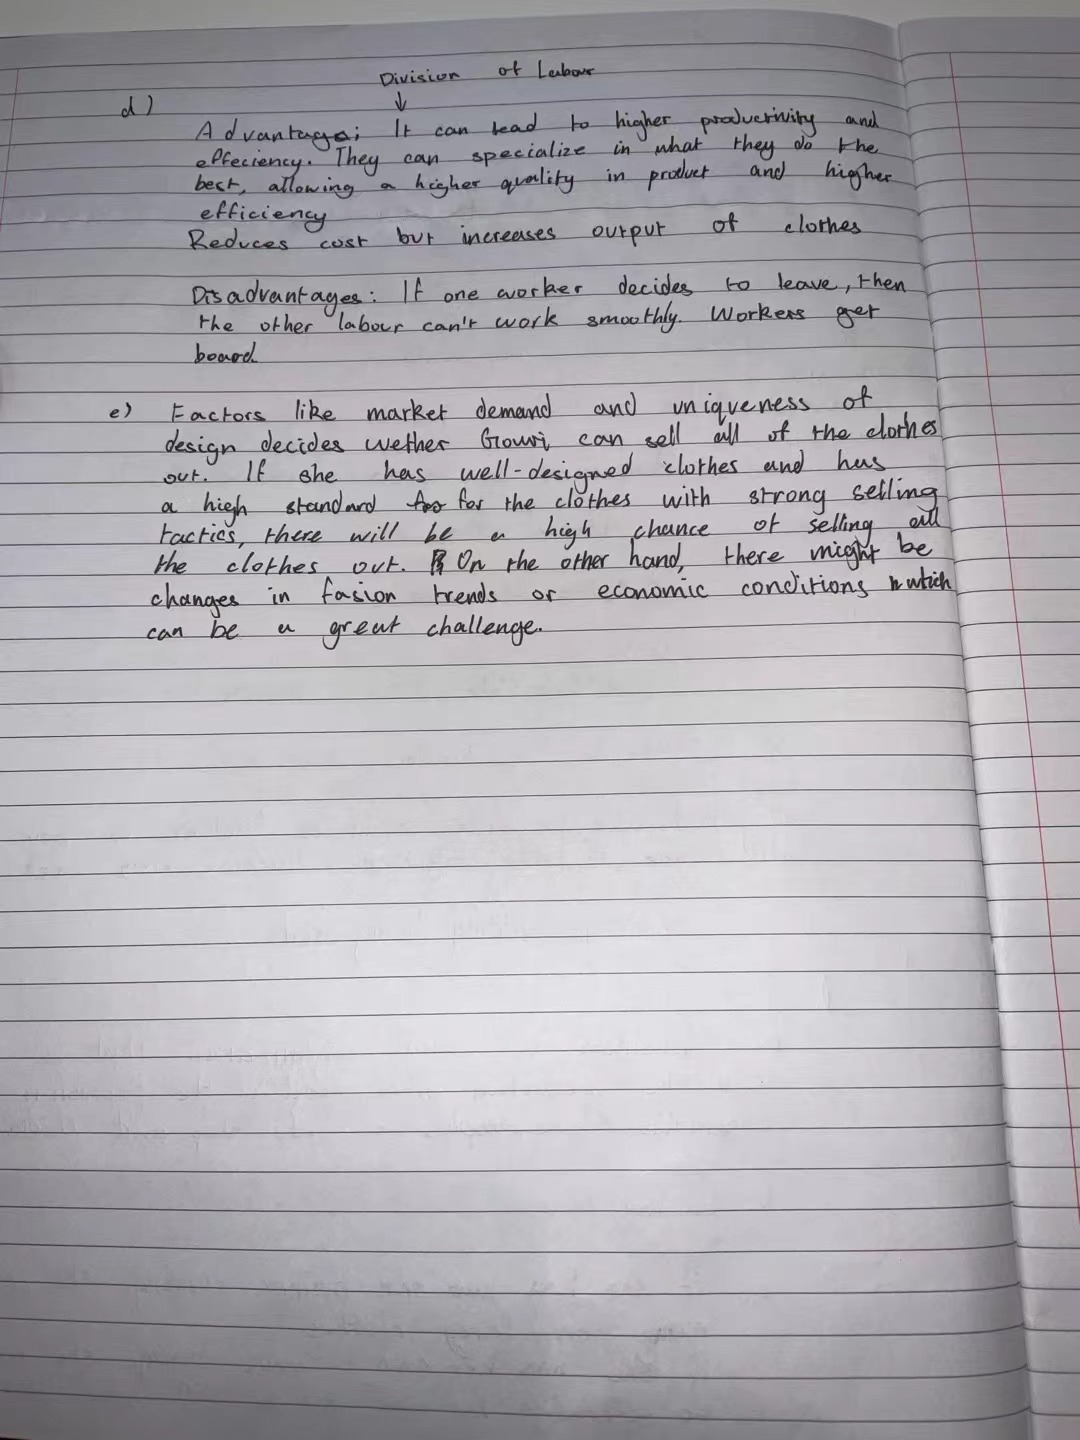 Division of Labour
d)
Advantage: It can lead to higher productivity and
effeciency. They can specialize in what they do the
best, allowing a higher quality in product and higher
efficiency
Reduces cost but increases output of clothes
Disadvantages: If one worker decides to leave, then
the other labour can't work smoothly. Workers get
board.
e) Factors like market demand and uniqueness of
design decides wether Gowri can sell all of the clothes
out. If she has well-designed clothes and has
a high standard for the clothes with strong selling
tactics, there will be a high chance of selling all
the clothes out. On the other hand, there might be
changes in fasion trends or economic conditions which
can be a great challenge.